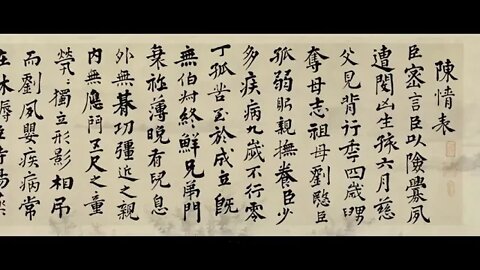 陳情表
臣密言臣以險釁夙
遭閔凶生孩六月慈
父見背行秊四歲舅
奪母志祖母劉愍臣
孤弱躬親撫養臣少
多疾病九歲不行零
丁孤苦至於成立既
無伯叔終鮮兄弟門
衰祚薄晚有兒息
外無朞功彊近之親
内無應門五尺之童
煢〻獨立形影相吊
而劉夙嬰疾病常
在牀蓐臣侍湯藥